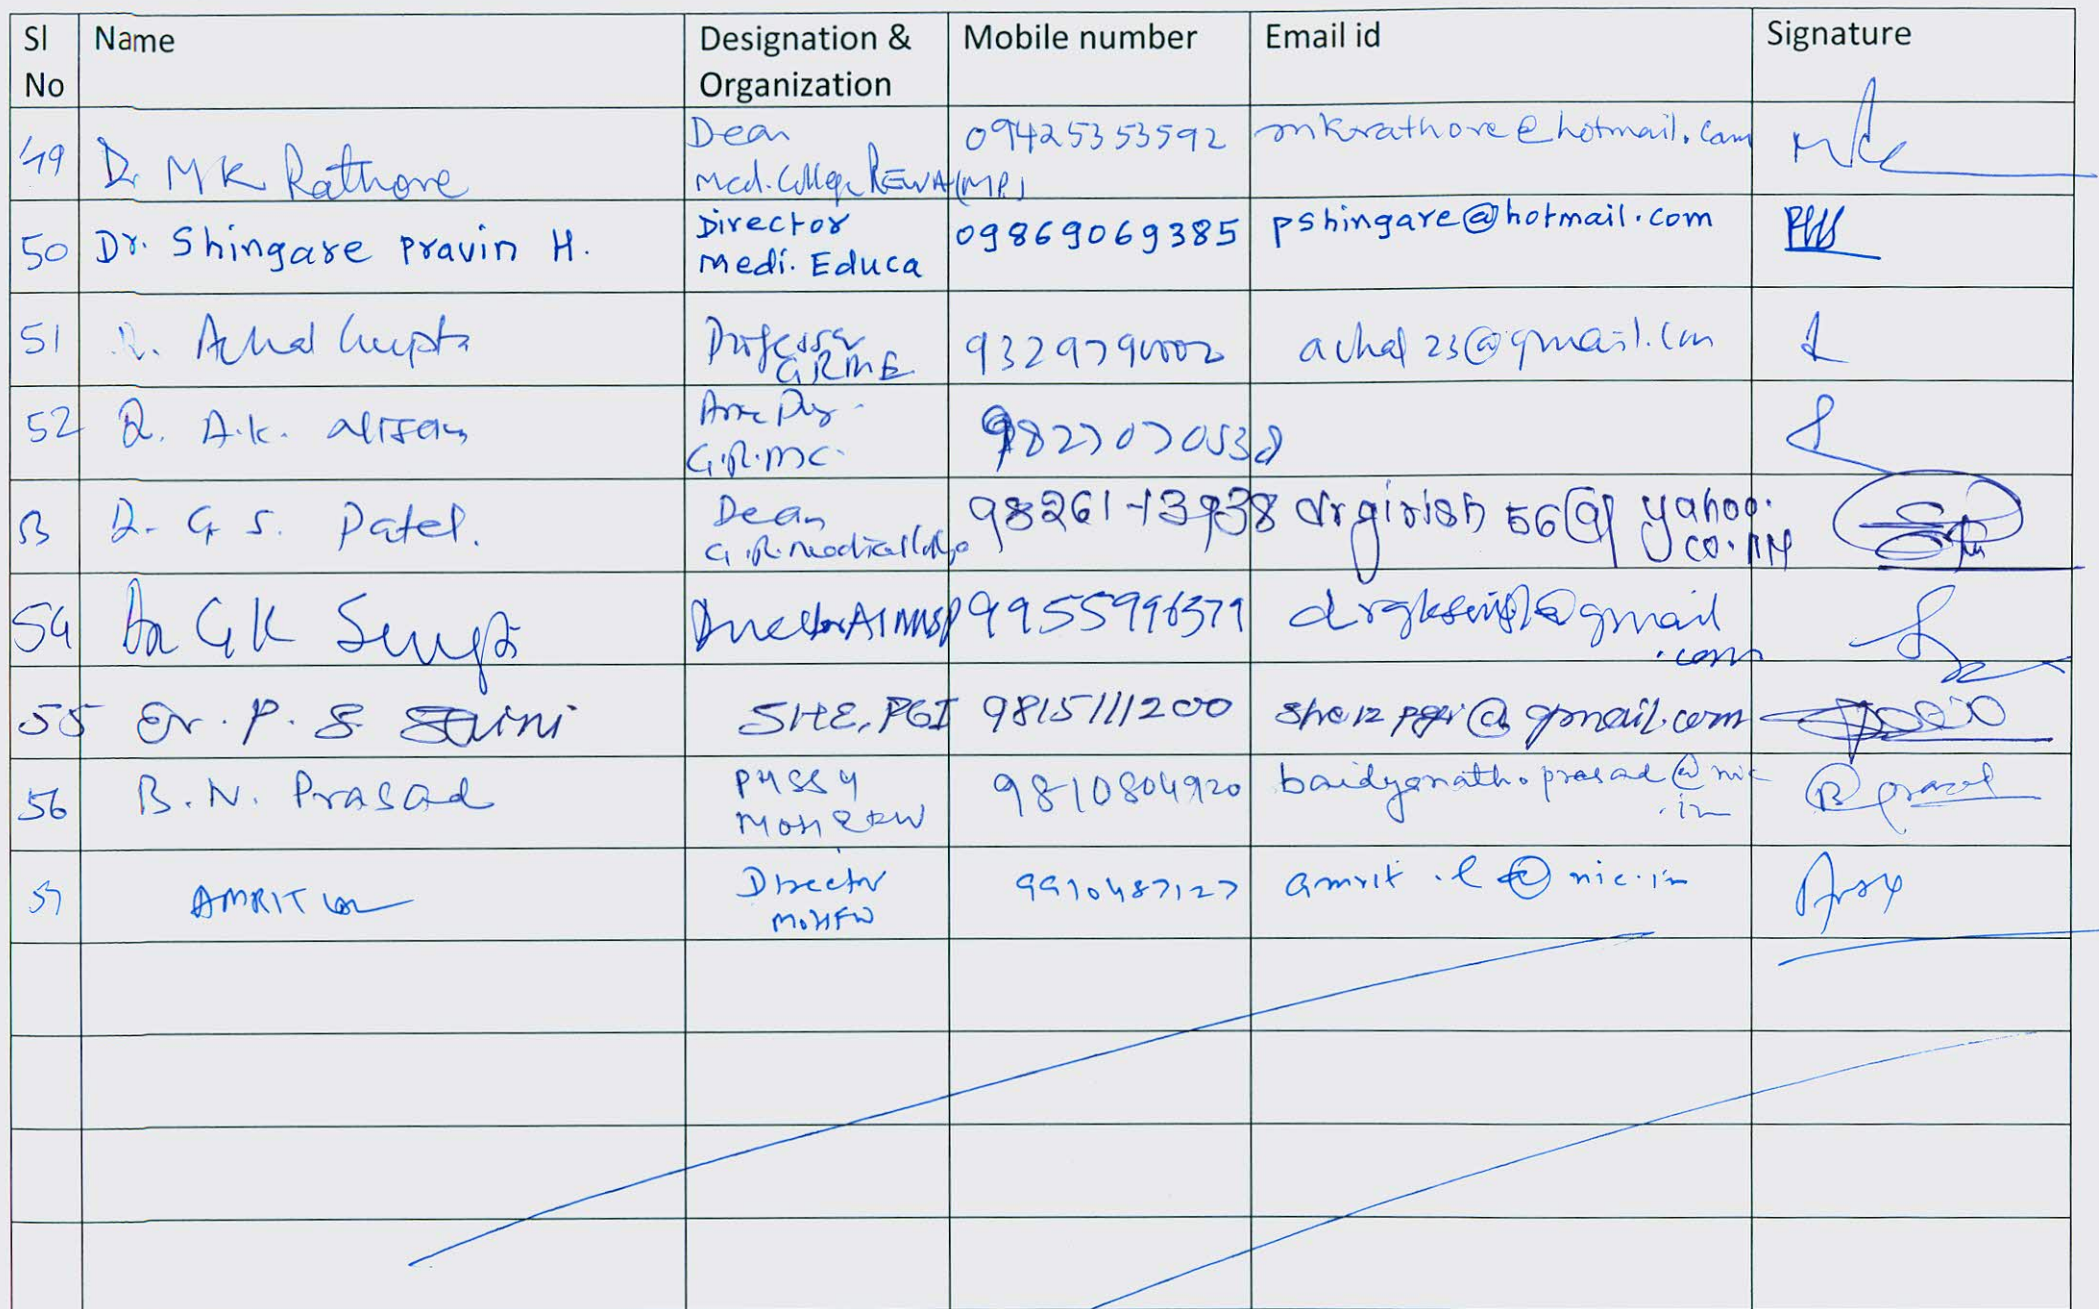 Sl No Name Designation & Organization Mobile number Email id Signature
49 Dr MK Rathore Dean Med. College REWA (MP) 09425353592 mkrathore@hotmail.com
50 Dr. Shingare Pravin H. Director Medi. Educa 09869069385 pshingare@hotmail.com
51 Dr. Achal Gupta Professor achal23@gmail.com
52 Dr. A.K. G.R.MC. 9827070538
53 Dr. G S. Patel. Dean G.R. medical 98261-13938 drgirish56@yahoo.co.in
54 Dr GK Singh Director AIIMS P 9955996379 @gmail.com
55 Er. P. S. Saini SHE, PGI 9815111200 she12pgi@gmail.com
56 B.N. Prasad MOH&FW 9810804920 baidyanath.prasad@nic.in
57 AMRIT Lal Director MOHFW 9910487127 amrit.l@nic.in